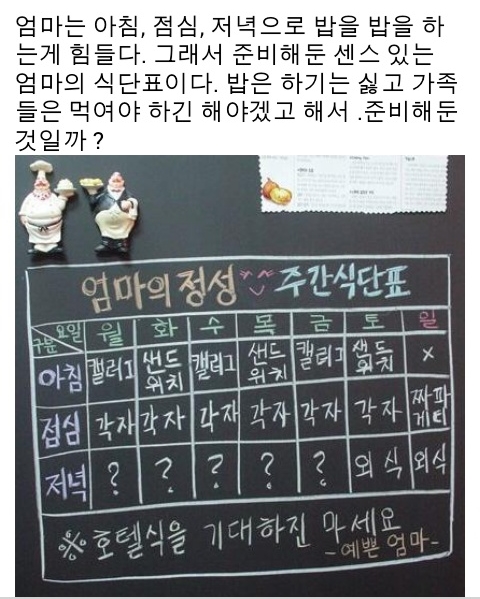 엄마는 아침, 점심, 저녁으로 밥을 밥을 하
는게 힘들다. 그래서 준비해둔 센스 있는
엄마의 식단표이다. 밥은 하기는 싫고 가족
들은 먹여야 하긴 해야겠고 해서 .준비해둔
것일까 ?
엄마의 정성 주간식단표
구분 요일 월 화 수 목 금 토 일
아침 캘러그 샌드위치 캘러그 샌드위치 캘러그 샌드위치 x
접심 각자 각자 각자 각자 각자 각자 짜파게티
저녁 ? ? ? ? ? 외식 외식
※ 호텔식을 기대하진 마세요
-예쁜 엄마-